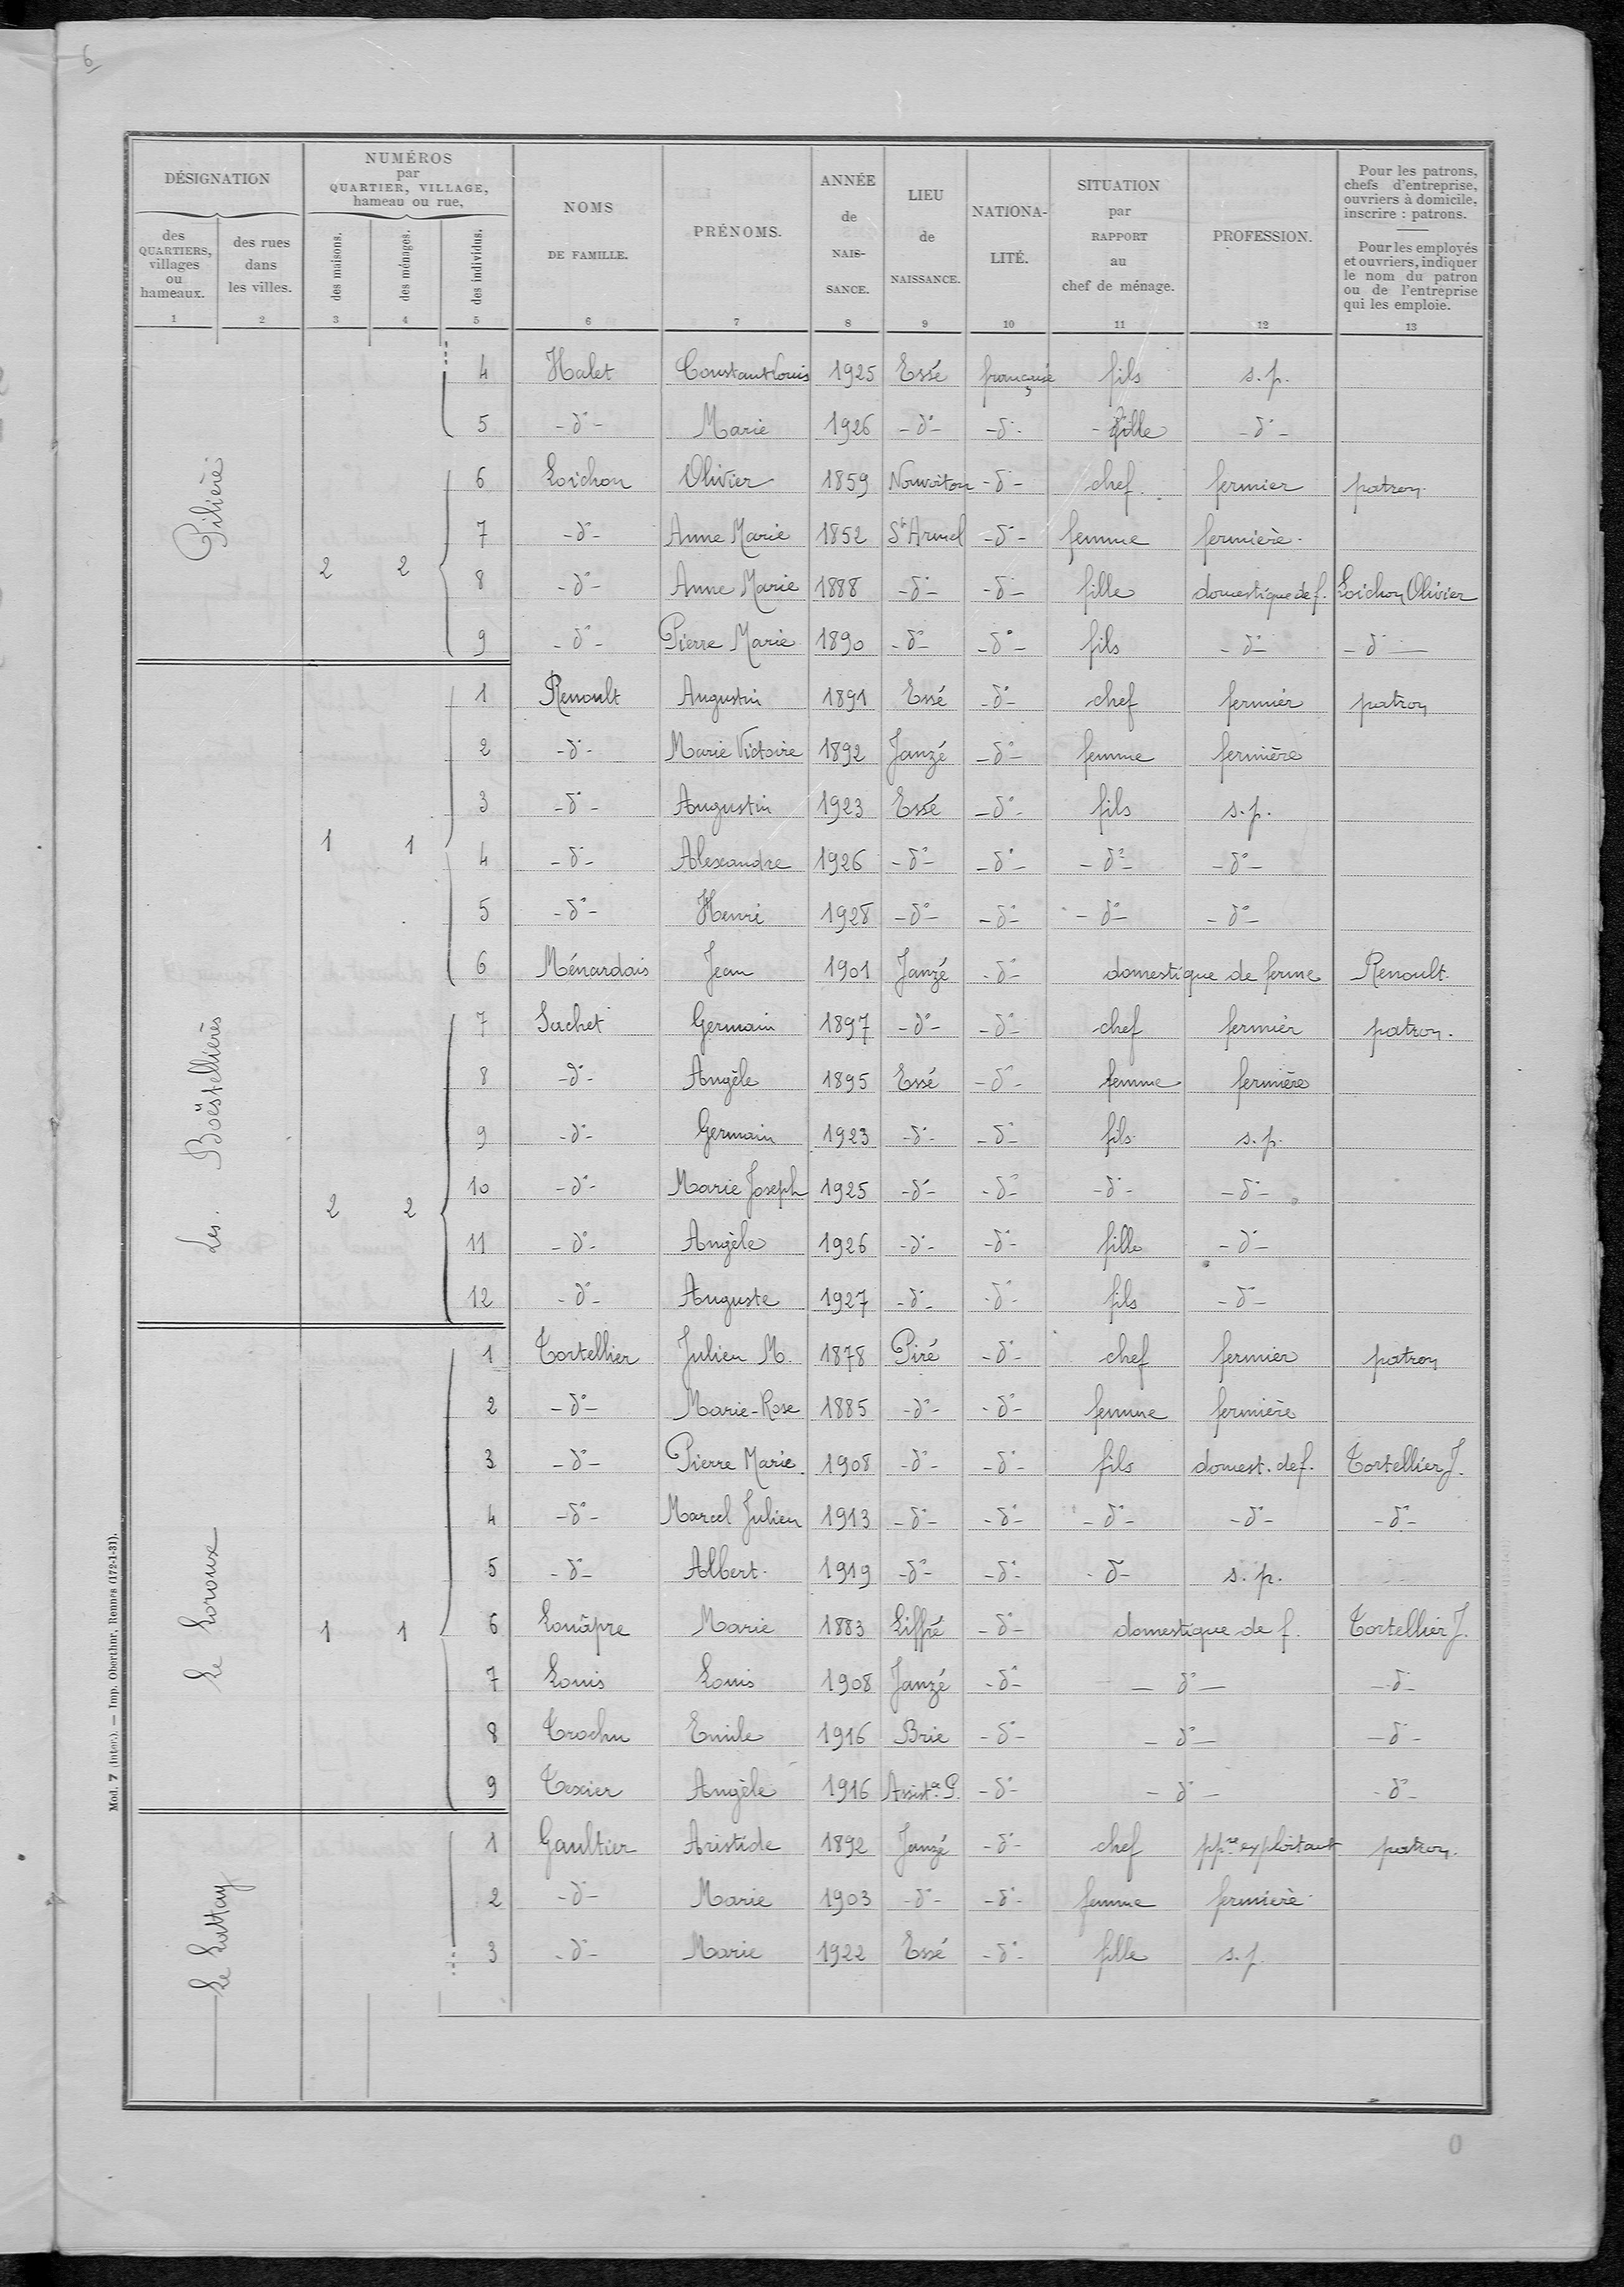 6
DÉSIGNATION
des QUARTIERS, villages ou hameaux.
des rues dans les villes.
NUMÉROS par QUARTIER, VILLAGE, hameau ou rue,
des maisons.
des ménages.
des individus.
NOMS DE FAMILLE.
PRÉNOMS.
ANNÉE de NAIS-SANCE.
LIEU de NAISSANCE.
NATIONA-LITÉ.
SITUATION par RAPPORT au chef de ménage.
PROFESSION.
Pour les patrons, chefs d'entreprise, ouvriers à domicile, inscrire : patrons.
Pour les employés et ouvriers, indiquer le nom du patron ou de l'entreprise qui les emploie.
1 2 3 4 5 6 7 8 9 10 11 12 13
Pilière
4 Halet Constant Louis 1925 Essé française fils s.p.
5 -d°- Marie 1926 -d°- -d°- fille -d°-
2 2
6 Loichon Olivier 1859 Nouvoitou -d°- chef fermier patron
7 -d°- Anne Marie 1852 St Armel -d°- femme fermière
8 -d°- Anne Marie 1888 -d°- -d°- fille domestique de f. Loichon Olivier
9 -d°- Pierre Marie 1890 -d°- -d°- fils -d°- -d°-
Les Boëstellières
1 1
1 Renoult Augustin 1891 Essé -d°- chef fermier patron
2 -d°- Marie Victoire 1892 Janzé -d°- femme fermière
3 -d°- Augustin 1923 Essé -d°- fils s.p.
4 -d°- Alexandre 1926 -d°- -d°- -d°- -d°-
5 -d°- Henri 1928 -d°- -d°- -d°- -d°-
6 Ménardais Jean 1901 Janzé -d°- domestique de ferme Renoult
2 2
7 Sachet Germain 1897 -d°- -d°- chef fermier patron.
8 -d°- Angèle 1895 Essé -d°- femme fermière
9 -d°- Germain 1923 -d°- -d°- fils s.p.
10 -d°- Marie Joseph 1925 -d°- -d°- -d°- -d°-
11 -d°- Angèle 1926 -d°- -d°- fille -d°-
12 -d°- Auguste 1927 -d°- -d°- fils -d°-
Le Loroux
1 1
1 Tortellier Julien M. 1878 Piré -d°- chef fermier patron
2 -d°- Marie-Rose 1885 -d°- -d°- femme fermière
3 -d°- Pierre Marie 1908 -d°- -d°- fils domest. de f. Tortellier J.
4 -d°- Marcel Julien 1913 -d°- -d°- -d°- -d°- -d°-
5 -d°- Albert 1919 -d°- -d°- -d°- s.p.
6 Louâpre Marie 1883 Liffré -d°- domestique de f. Tortellier J.
7 Louis Louis 1908 Janzé -d°- -d°- -d°-
8 Trochu Emile 1916 Brie -d°- -d°- -d°-
9 Texier Angèle 1916 Assist.ce P. -d°- -d°- -d°-
Le Lattay
1 Gaultier Aristide 1892 Janzé -d°- chef pp.re exploitant patron.
2 -d°- Marie 1903 -d°- -d°- femme fermière
3 -d°- Marie 1922 Essé -d°- fille s.p.
Mod. 7 (Inter.). — Imp. Oberthur, Rennes (172-1-31).
0